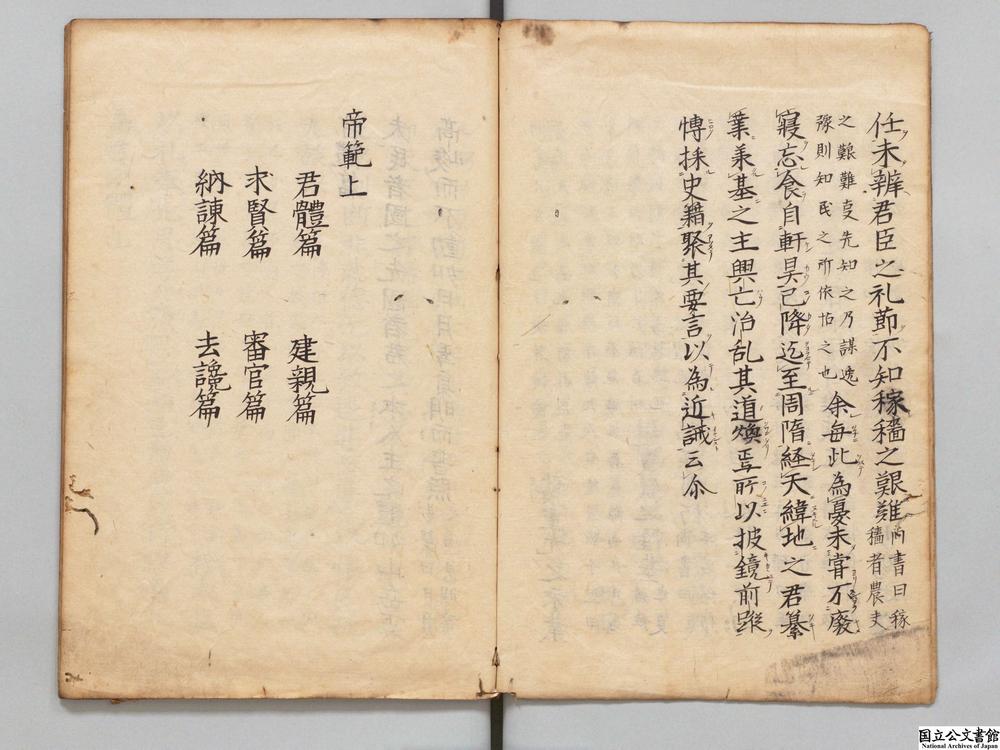 任未辨君臣之礼莭不知稼穡之艱難尚書曰稼穡者農夫
之艱難事先知之乃謀逸豫則知民之所依怙之也余每此為憂未甞不廢
寢忘食自軒昊已降迄至周隋経天緯地之君纂
業承基之主興亡治乱其道煥焉所以披鏡前蹤
博採史籍聚其要言以為近誡云尒
帝範上
君體篇 建親篇
求賢篇 審官篇
納諌篇 去讒篇
国立公文書館
National Archives of Japan